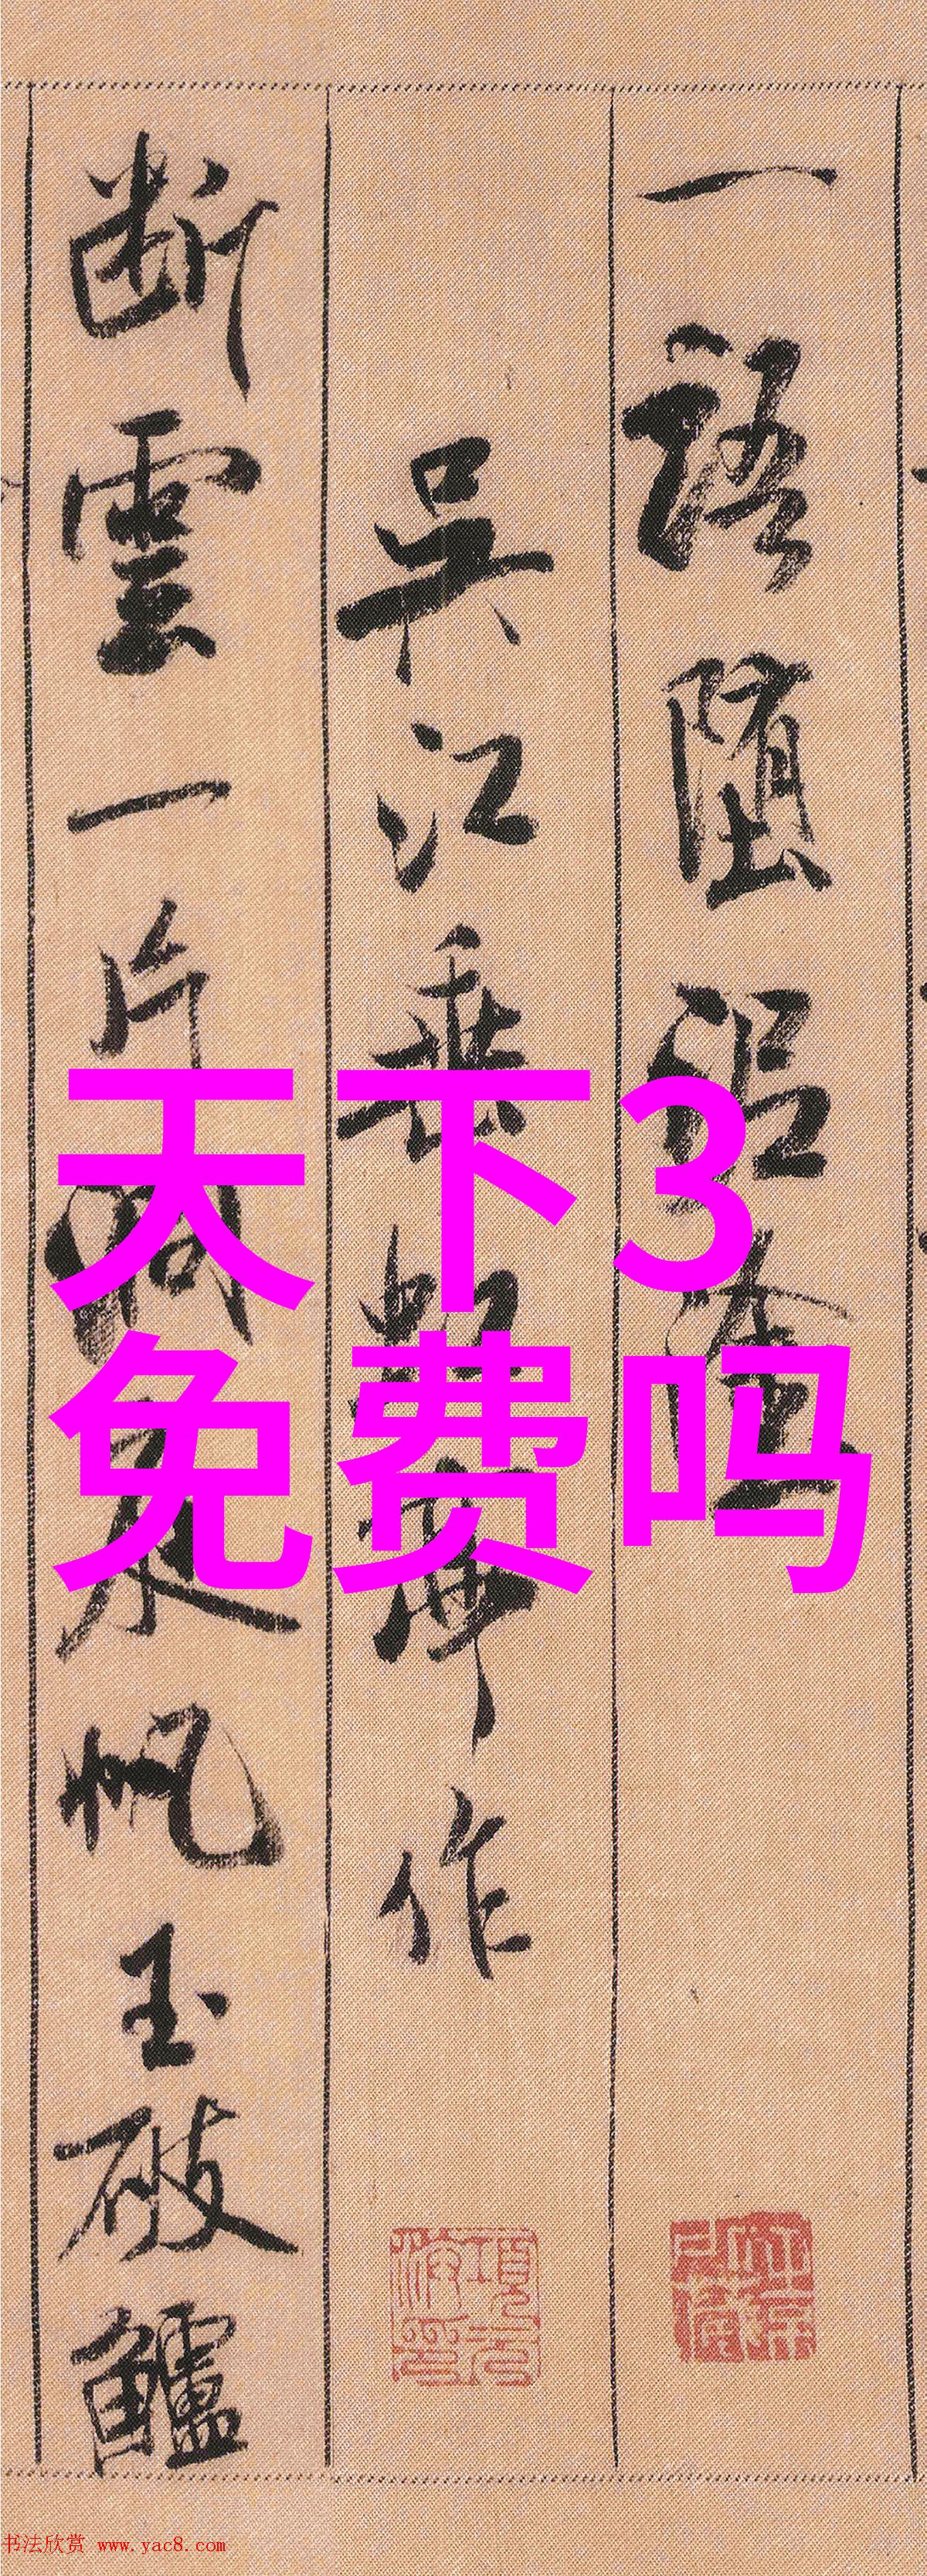 一語墮泥塗
吴江垂虹亭作
断雲一片洞庭帆玉破鱸
天下3
免费吗
书法欣赏 www.yac8.com